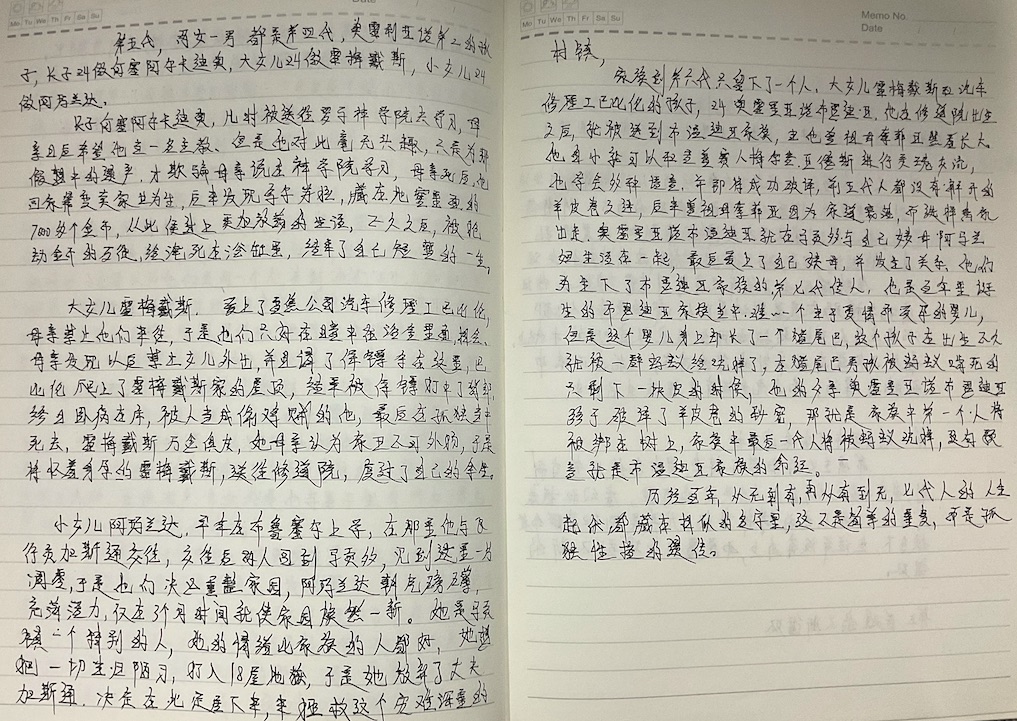 Date
Mo Tu We Th Fr Sa Su
第五代，两女一男 都是第五代，奥雷利亚诺第二的孩
子，长子24做何塞阿尔卡迪奥，大女儿24做雷梅戴斯，小女儿24
做阿玛兰达。
长子何塞阿尔卡迪奥，儿时被送往罗马神学院去学习，母
亲日后希望他当一名主教、但是他对此毫无兴趣，只是为那
假想中的遗产，才欺骗母亲说在神学院学习，母亲死后，他
回家靠变卖家业为生，后来发现乌尔苏拉，藏在地窖里面的
7000多个金币，从此便过上更加放荡的生活，不久之后，被抢
劫金币的歹徒，给淹死在浴缸里，结束了自己短暂的一生。
大女儿雷梅戴斯．爱上了香蕉公司汽车修理工巴比伦，
母亲禁止他们来往，于是他们只好在暗中在浴室里面相会、
母亲发现以后禁止女儿外出，并且请了保镖守在这里，巴
比伦 爬上了雷梅戴斯家的屋顶，结果被保镖打中了
终日卧病在床，被人当成偷鸡贼的他，最后在孤独当中
死去，雷梅戴斯万念俱灰，她母亲认为家丑不可外扬，于是
将怀着身孕的雷梅戴斯，送往修道院，度过了自己的余生。
小女儿阿玛兰达．早年在布鲁塞尔上学，在那里她与飞
行员加斯通交往，交往后两人回到马贡多，见到这里一片
凋零，于是他们决定重整家园，阿玛兰达朝气磅礴，
充满活力，仅在3个月时间就使家园焕然一新。她是马贡
一个特别的人，她的情绪比家族的人都好，她想
把一切生旧陋习，打入18层地狱，于是她放弃了丈夫
加斯通．决定在此定居下来，来拯救这个灾难深重的
Mo Tu We Th Fr Sa Su
Memo No.
Date
村镇，
家族到第六代只留下了一个人，大女儿雷梅戴斯和汽车
修理工巴比伦的孩子，24奥雷里亚诺布恩迪亚．他在修道院出生
之后，就被送到布恩迪亚家族，
他在小就可以和
他学会多种语言．年即将成功破译，前五代人都没有解开的
羊皮卷之谜，后来曾祖母菲南达因为家族衰落，而选择离家
出走．奥雷里亚诺布恩迪亚就在马贡多与自己姨母阿马兰
妲生活在一起，最后爱上了自己姨母，并发生了关系，他们
两生下了布恩迪亚家族的第七代传人，也是这本书里 诞
生的布恩迪亚家族当中．唯一一个由于爱情而受孕的婴儿，
但是这个婴儿身上却长了一个猪尾巴，这个孩子在出生不久
就被一群蚂蚁给吃掉了，在猪尾巴男孩被蚂蚁啃死的
只剩下一块皮的时候，他的父亲奥雷里亚诺布恩迪亚
终于破译了羊皮卷的秘密，那就是家族中第一个人将
被绑在树上，家族中最后一代人将被蚂蚁吃掉，
就是布恩迪亚家族的命运。
历经百年，从无到有，再从有到无，七代人的人生
起伏都藏在相似的名字里，这不是简单的重复，而是孤
独性格的遗传。